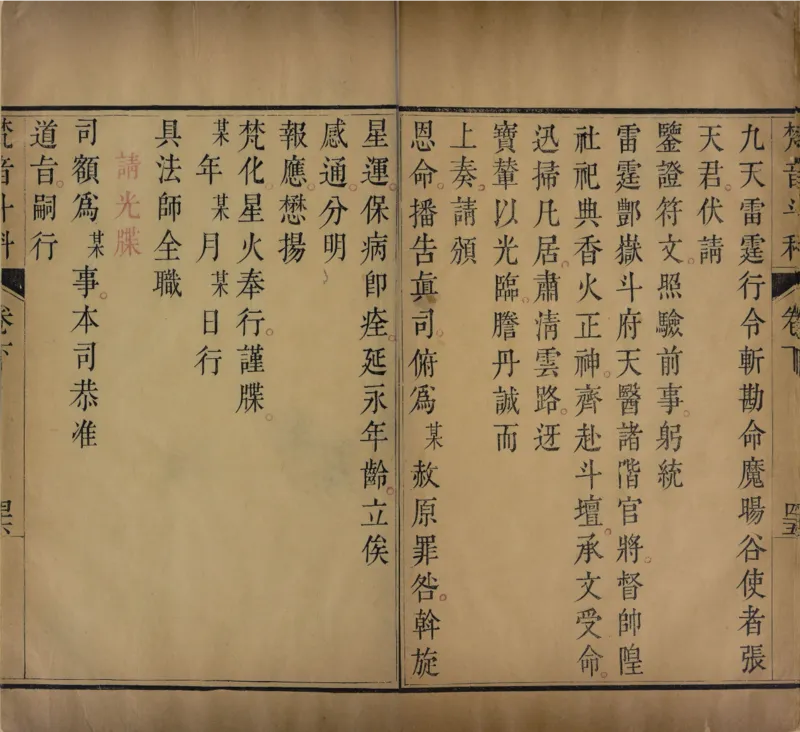 梵音斗科
卷下
四五
九天雷霆行令斬勘命魔暘谷使者張
天君。伏請
鑒證符文。照驗前事。躬統
雷霆酆嶽斗府天醫諸階官將。督帥隍
社祀典香火正神。齊赴斗壇。承文受命。
迅掃凡居。肅清雲路。迓
寶輦以光臨。謄丹誠而
上奏。請頒
恩命。播告眞司。俯為某赦原罪咎。斡旋
星運。保病卽痊。延永年齡。立俟
感通。分明
報應。懋揚
梵化。星火奉行。謹牒。
某年某月某日行
具法師全職
請光牒
司額為某事。本司恭准
道旨。嗣行
梵音斗科
卷下
四六